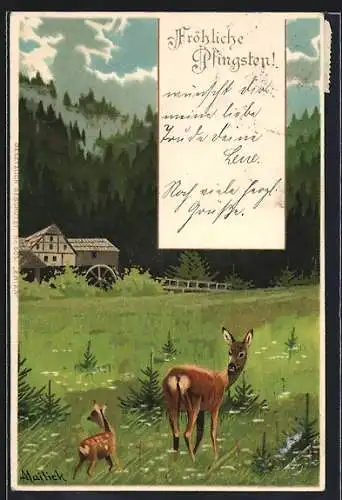 Fröhliche
Pfingsten!
wünscht dir
meine liebe
Trude deine
Lene.
Noch viele herzl.
Grüße.
Mailick